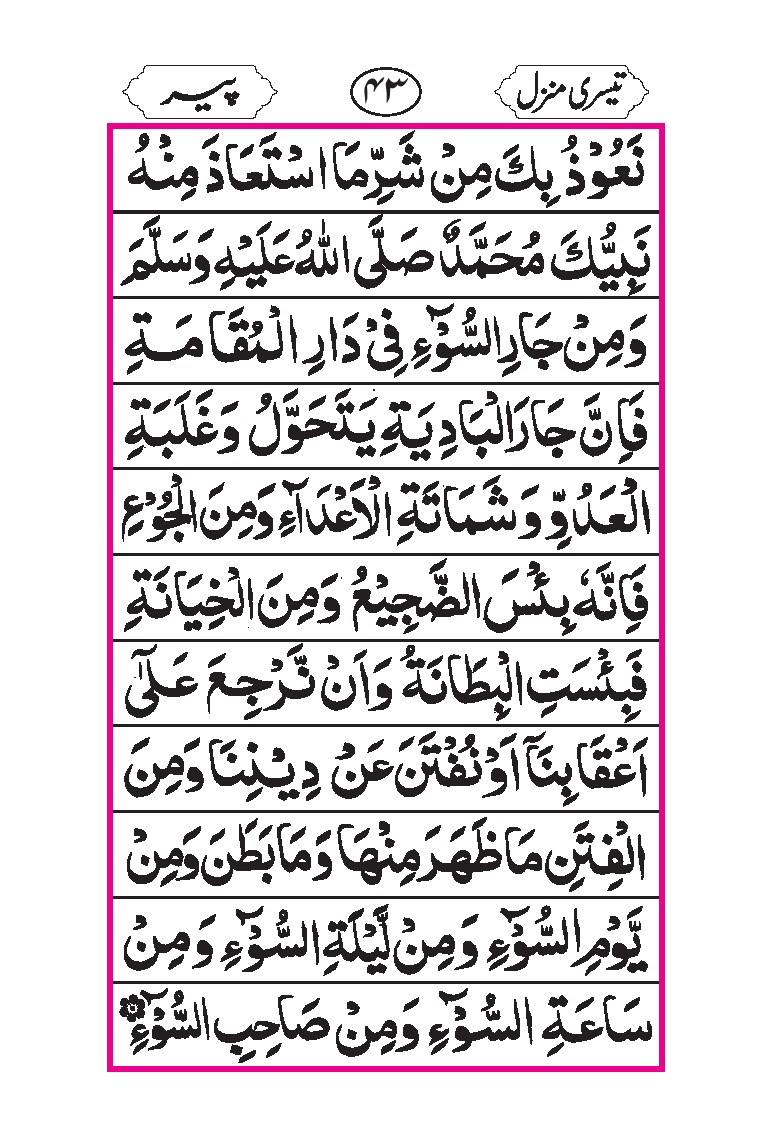 تیسری منزل ۴۳ پیر
نَعُوْذُ بِكَ مِنْ شَرِّ مَا اسْتَعَاذَ مِنْهُ
نَبِيُّكَ مُحَمَّدٌ صَلَّى اللهُ عَلَيْهِ وَسَلَّمَ
وَمِنْ جَارِ السُّوْٓءِ فِيْ دَارِ الْمُقَامَةِ
فَاِنَّ جَارَ الْبَادِيَةِ يَتَحَوَّلُ وَغَلَبَةِ
الْعَدُوِّ وَشَمَاتَةِ الْاَعْدَآءِ وَمِنَ الْجُوْعِ
فَاِنَّهٗ بِئْسَ الضَّجِيْعُ وَمِنَ الْخِيَانَةِ
فَبِئْسَتِ الْبِطَانَةُ وَاَنْ نَّرْجِعَ عَلٰٓى
اَعْقَابِنَآ اَوْ نُفْتَنَ عَنْ دِيْنِنَا وَمِنَ
الْفِتَنِ مَا ظَهَرَ مِنْهَا وَمَا بَطَنَ وَمِنْ
يَّوْمِ السُّوْٓءِ وَمِنْ لَّيْلَةِ السُّوْٓءِ وَمِنْ
سَاعَةِ السُّوْٓءِ وَمِنْ صَاحِبِ السُّوْٓءِ